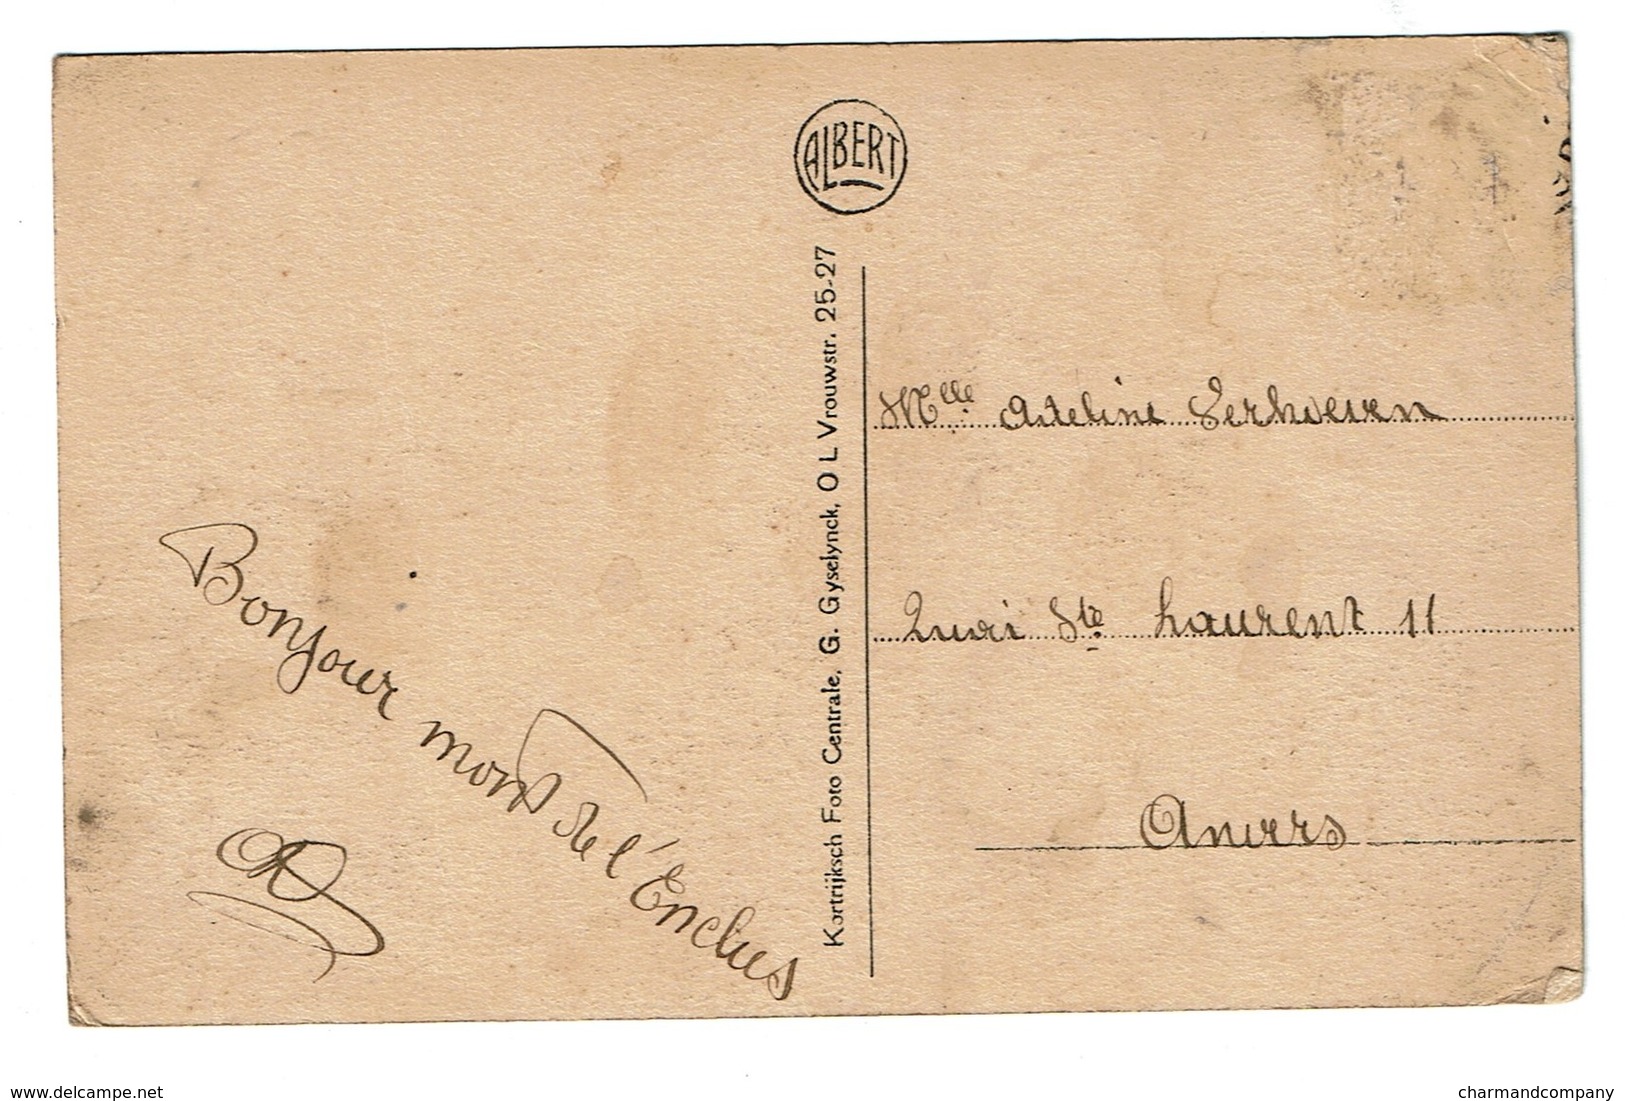 ALBERT
Bonjour mont de l'Enclus
Kortrijksch Foto Centrale, G. Gyselynck, O L Vrouwstr. 25-27
Mlle Adeline Verhoeven
Quai Ste Laurent 11
Anvers
www.delcampe.net
charmandcompany